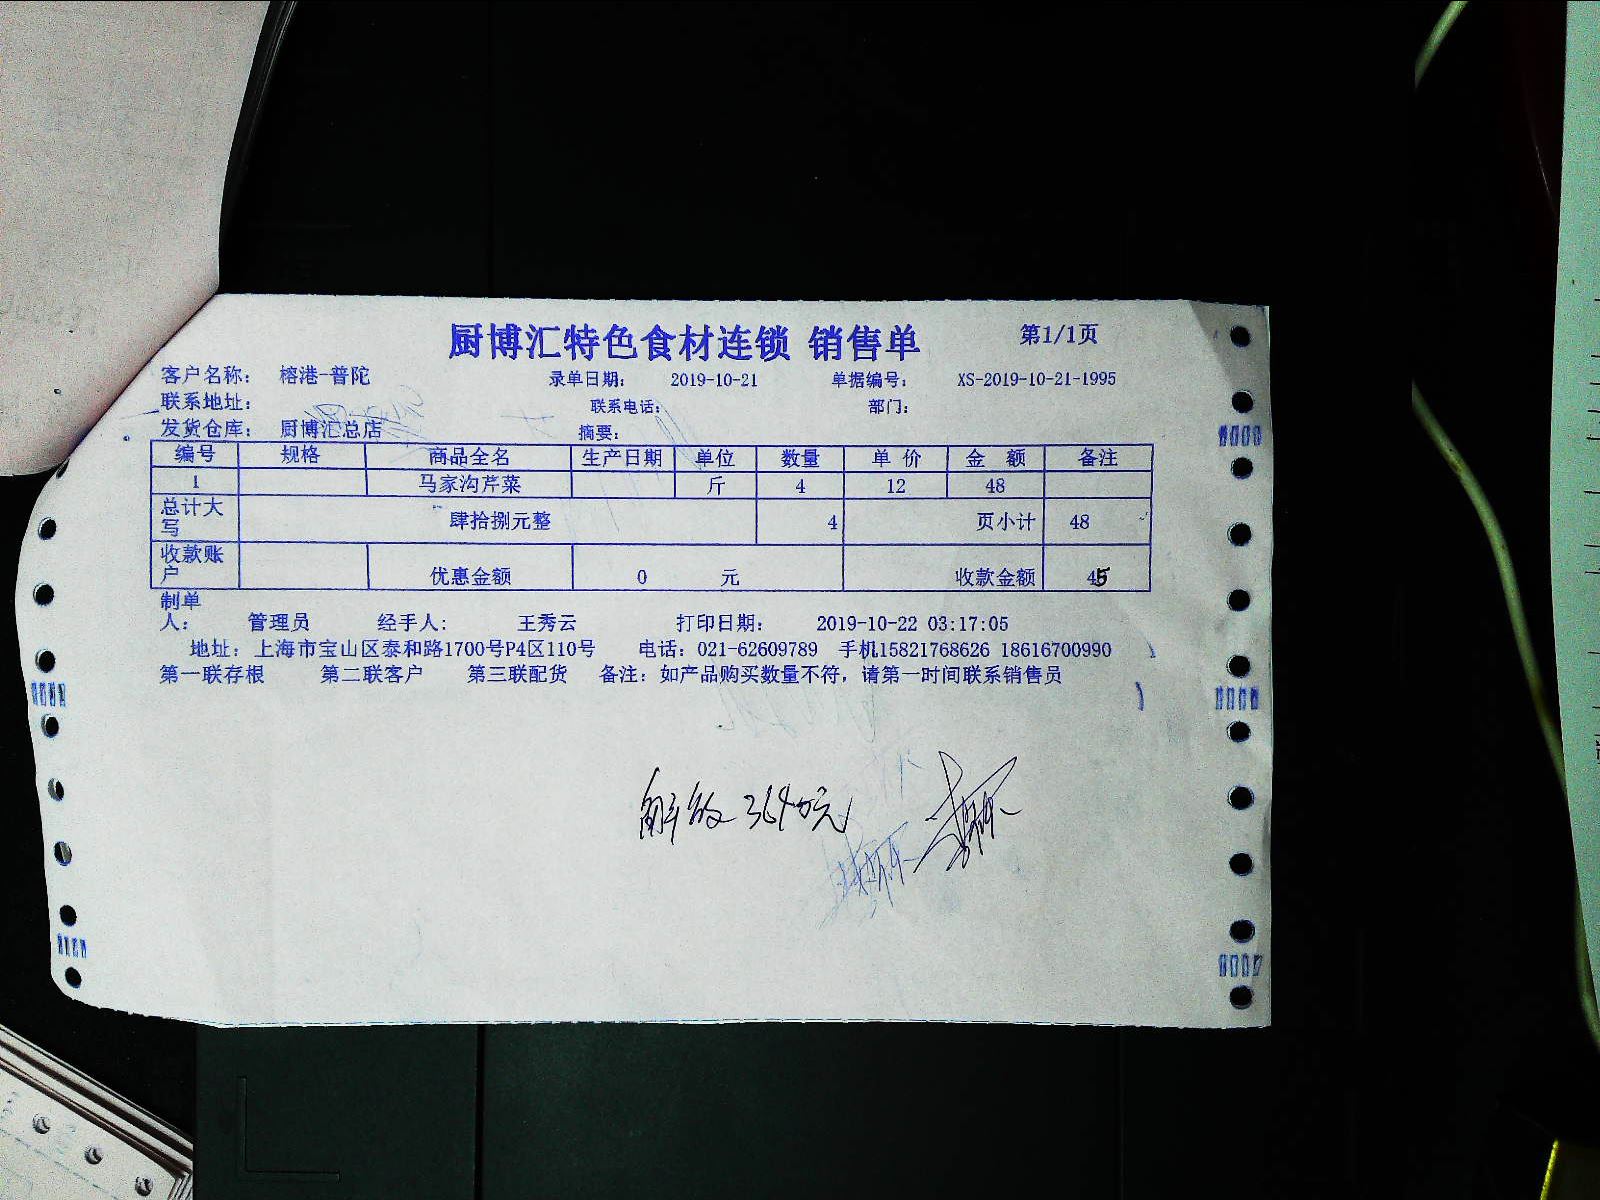 厨博汇特色食材连锁 销售单 第1/1页
客户名称： 榕港-普陀 录单日期： 2019-10-21 单据编号： XS-2019-10-21-1995
联系地址： 联系电话： 部门：
发货仓库： 厨博汇总店 摘要：
编号 规格 商品全名 生产日期 单位 数量 单 价 金 额 备注
1 马家沟芹菜 斤 4 12 48
总计大写 肆拾捌元整 4 页小计 48
收款账户 优惠金额 0 元 收款金额 45
制单人： 管理员 经手人： 王秀云 打印日期： 2019-10-22 03:17:05
地址：上海市宝山区泰和路1700号P4区110号 电话：021-62609789 手机15821768626 18616700990
第一联存根 第二联客户 第三联配货 备注：如产品购买数量不符，请第一时间联系销售员